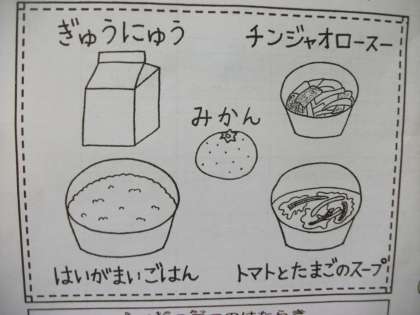 ぎゅうにゅう
チンジャオロースー
みかん
はいがまいごはん
トマトとたまごのスープ